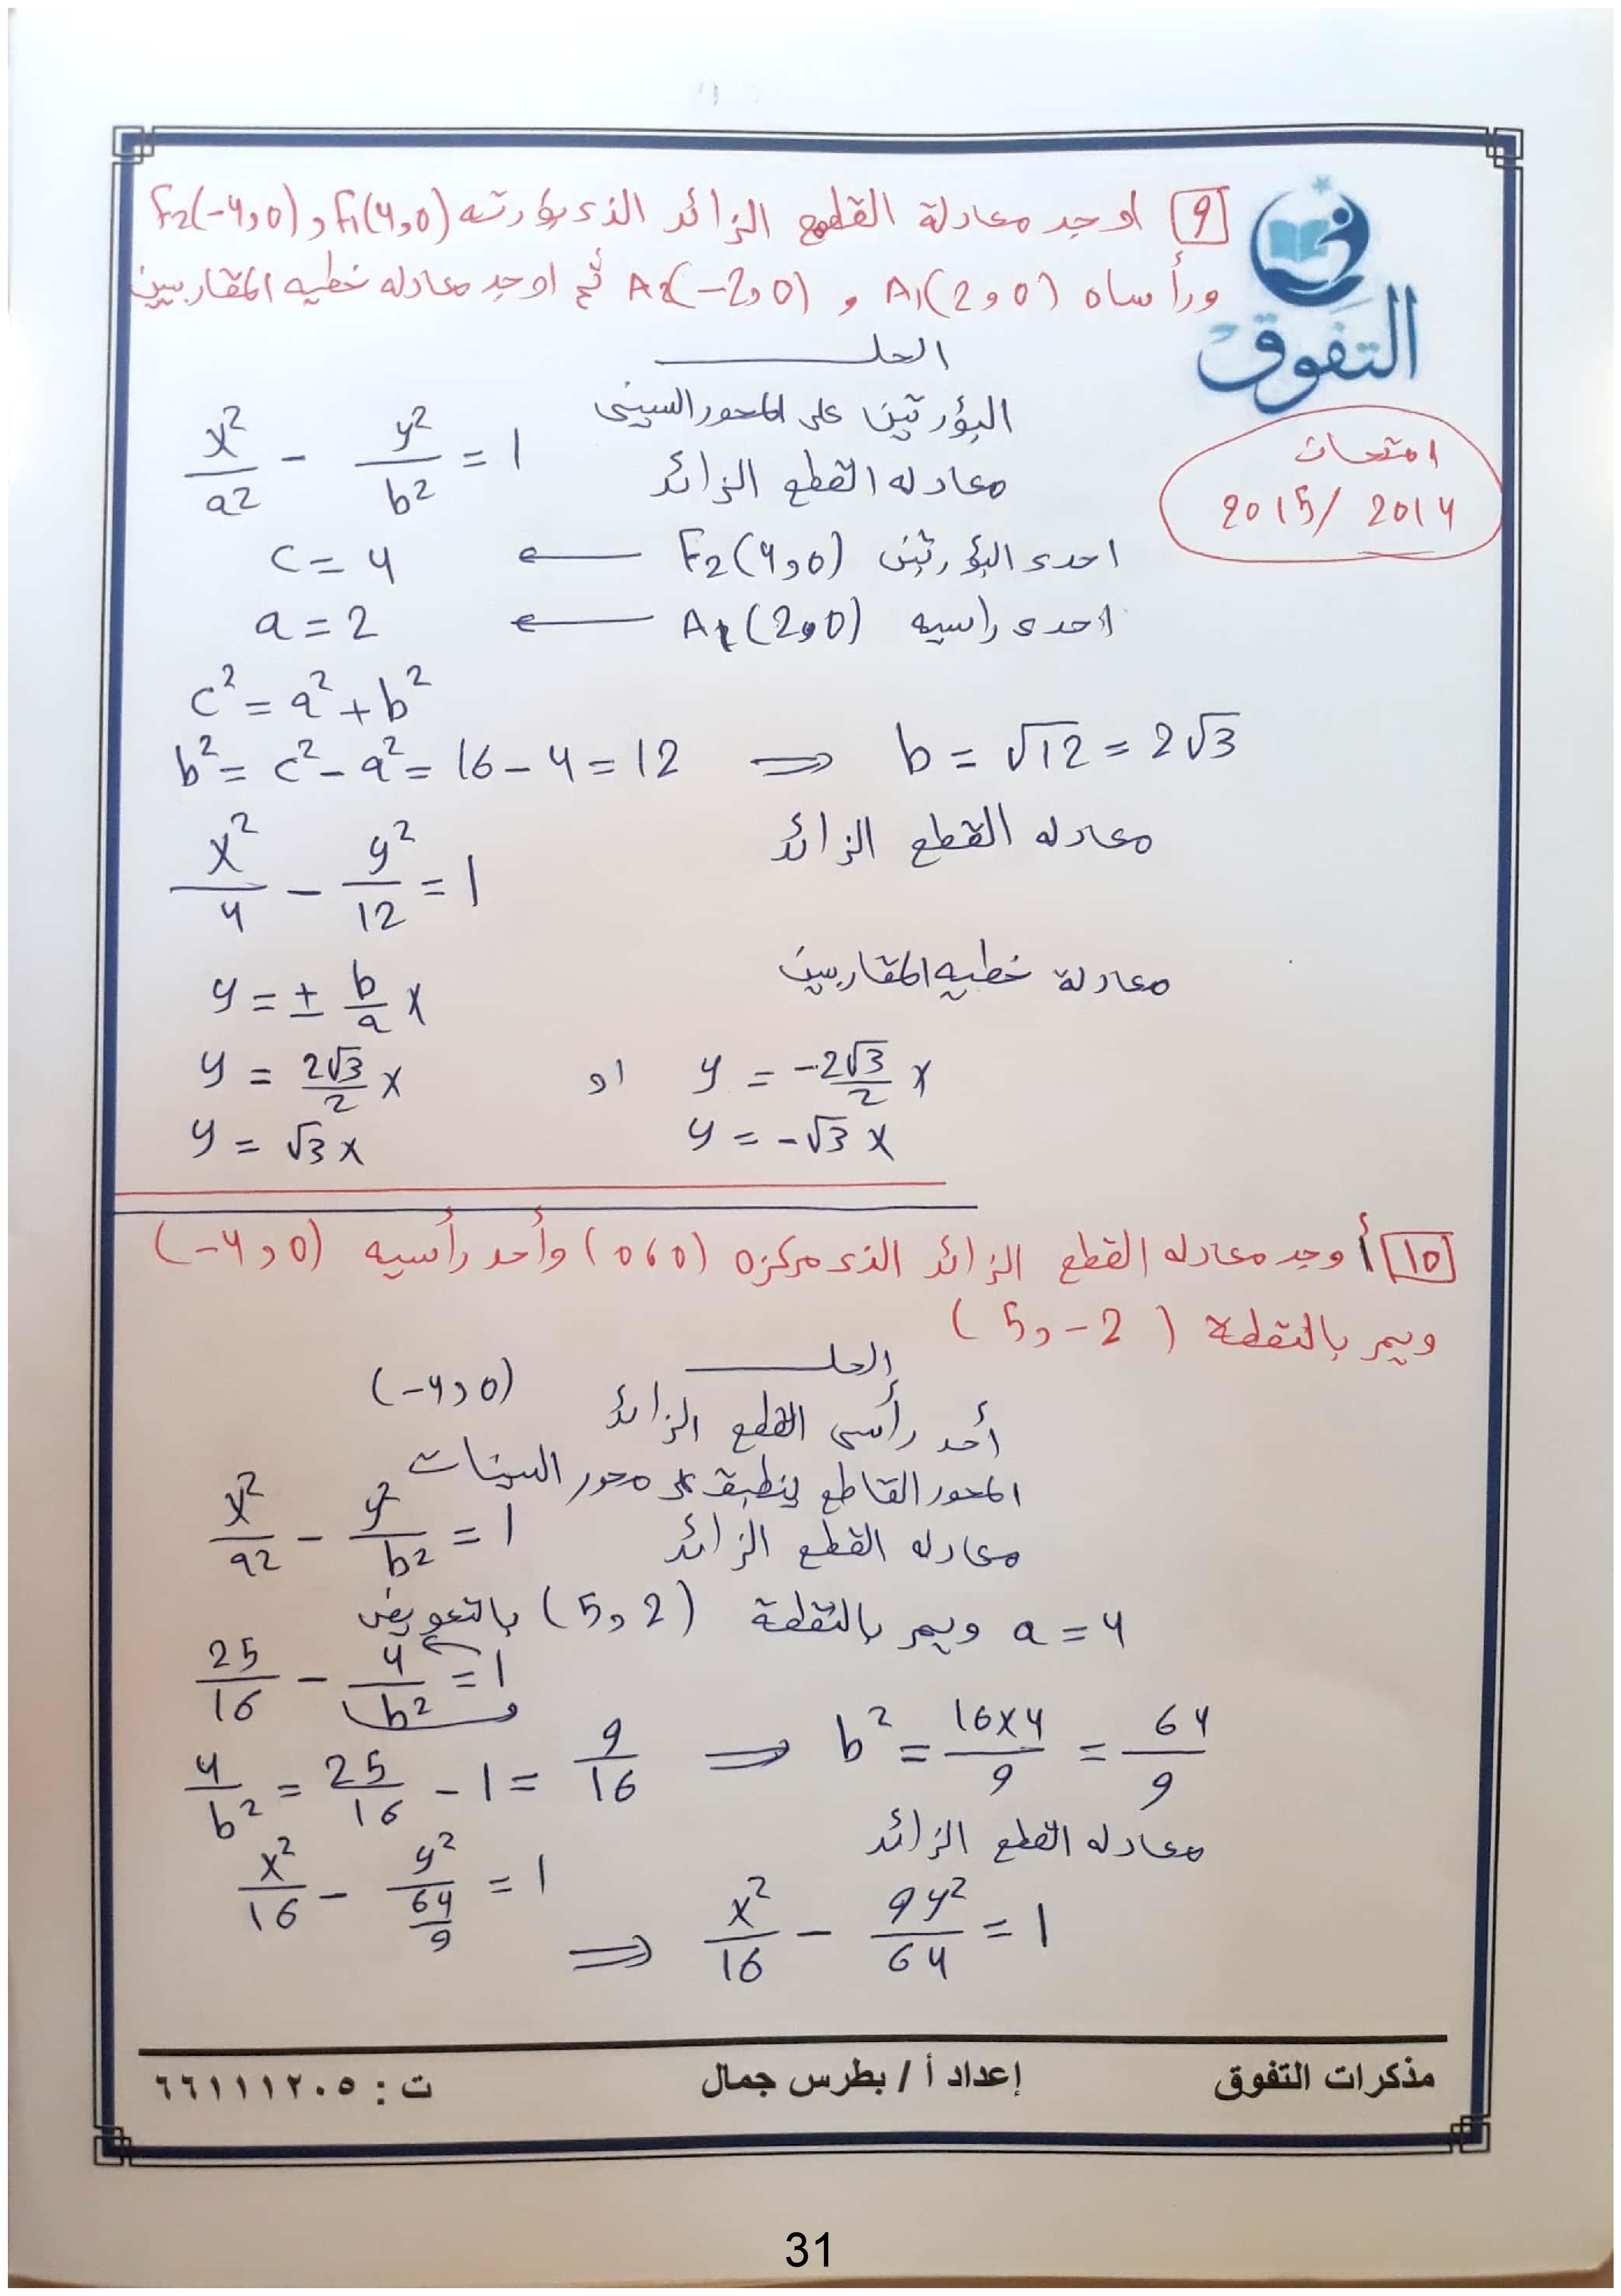 9 اوجد معادلة القطع الزائد الذى بؤرته F1(4,0) , F2(-4,0)
ورأساه A1(2,0) , A2(-2,0) ثم اوجد معادله خطيه المقاربين
التفوق
امتحان
2014 /2015
الحل
البؤرتين على المحور السينى
معادله القطع الزائد x²/a² - y²/b² = 1
احدى البؤرتين F2(4,0) ← c = 4
احدى راسيه A1(2,0) ← a = 2
c² = a² + b²
b² = c² - a² = 16 - 4 = 12 ⇒ b = √12 = 2√3
معادله القطع الزائد
x²/4 - y²/12 = 1
معادلة خطيه المقاربين
y = ± b/a x
y = 2√3/2 x او y = -2√3/2 x
y = √3 x y = -√3 x
10 أوجد معادله القطع الزائد الذى مركزه (0,0) وأحد رأسيه (-4,0)
ويمر بالنقطة (5,-2)
الحل
أحد رأسى القطع الزائد (-4,0)
المحور القاطع ينطبق على محور السينات
معادله القطع الزائد x²/a² - y²/b² = 1
a = 4 ويمر بالنقطة (5,2) بالتعويض
25/16 - 4/b² = 1
4/b² = 25/16 - 1 = 9/16 ⇒ b² = 16×4/9 = 64/9
معادله القطع الزائد
x²/16 - y²/(64/9) = 1 ⇒ x²/16 - 9y²/64 = 1
مذكرات التفوق إعداد أ / بطرس جمال ت : ٦٦١١١٢٠٥
31